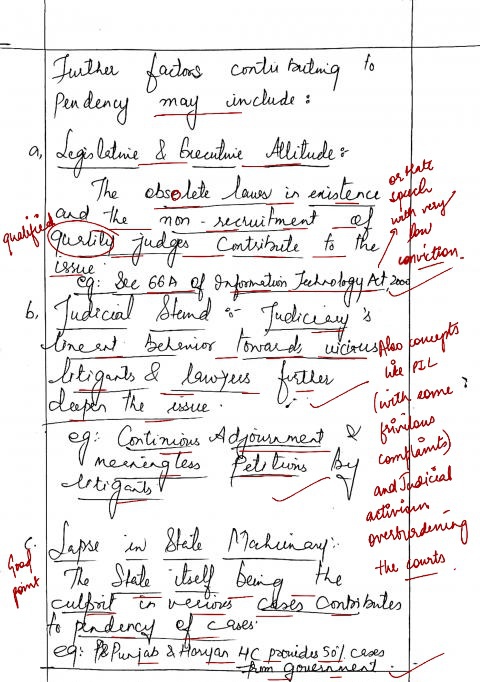 Further factors contributing to
Pendency may include:
a, Legislative & Executive Attitude:
The obsolete laws in existence
and the non-recruitment of
quality judges Contribute to the
issue
eg: Sec 66A of Information Technology Act, 2000
qualified
or Hate
speech
with very
low
conviction.
b, Judicial Stand :- Judiciary's
linent behavior towards vicious
litigants & lawyers further
deeper the issue.
eg: Continious Adjournment &
meaningless Petitions By
litigants
Also concepts
like PIL
(with some
frivilous
complaints)
and Judicial
activism
overburdening
the courts
c. Lapse in State Machinary:
The State itself being the
culprit in various cases Contributes
to pendency of cases.
eg: Punjab & Haryan HC provides 50% cases
from government.
Good
point